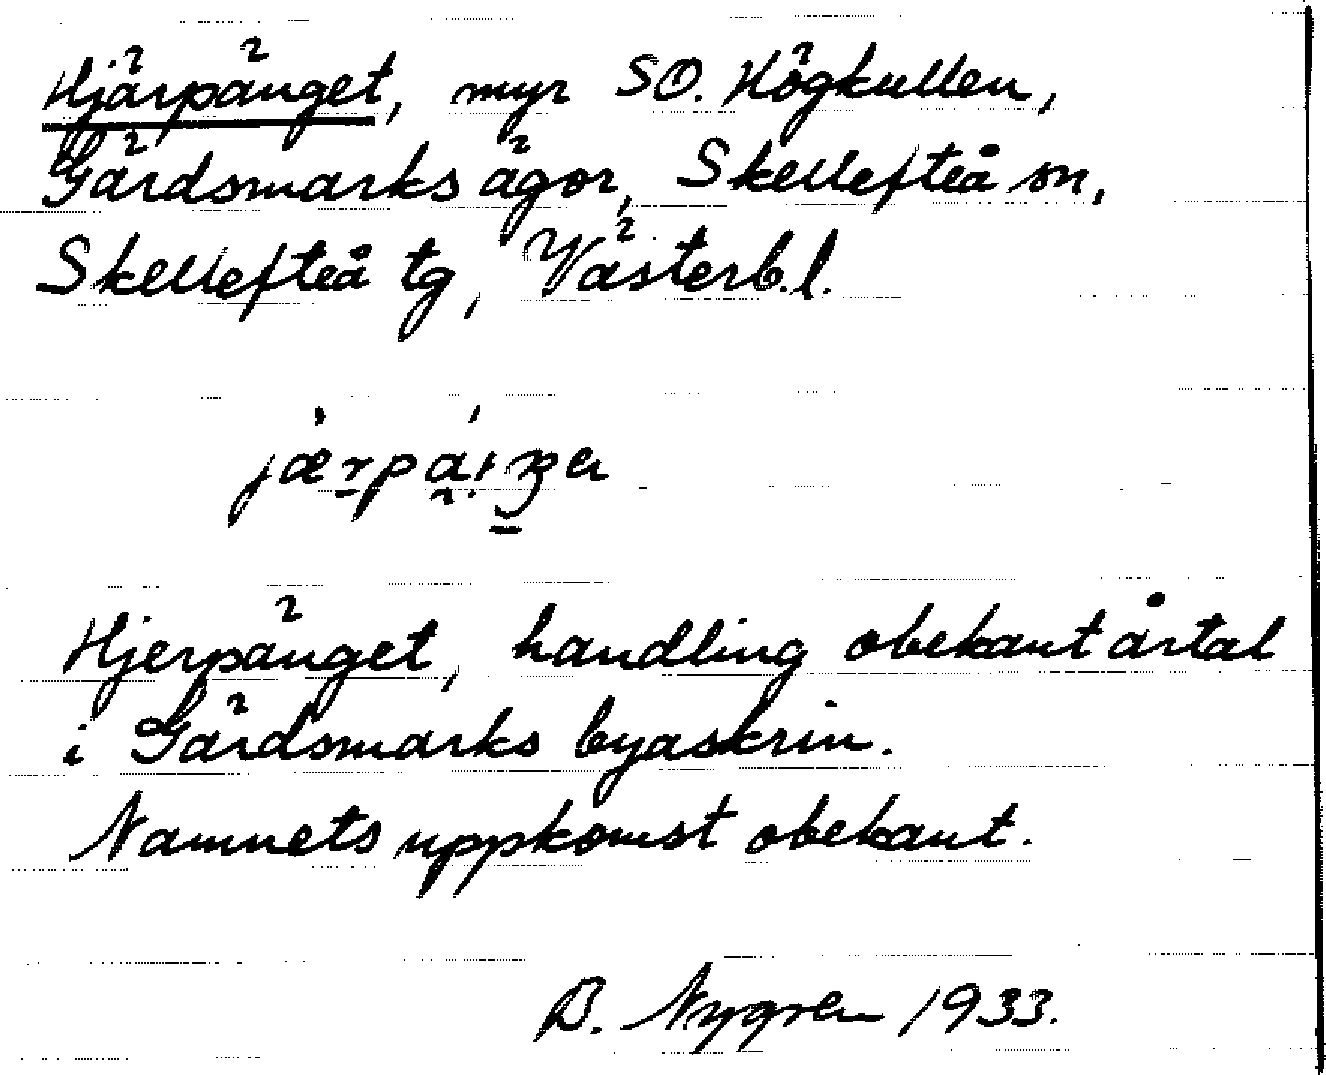 Hjärpänget, myr SO. Högkullen,
Gärdsmarks ägor, Skellefteå sn,
Skellefteå tg, Västerb.l.
Hjerpänget, handling obekant årtal
i Gärdsmarks byaskrin.
Namnets uppkomst obekant.
B. Nygren 1933.